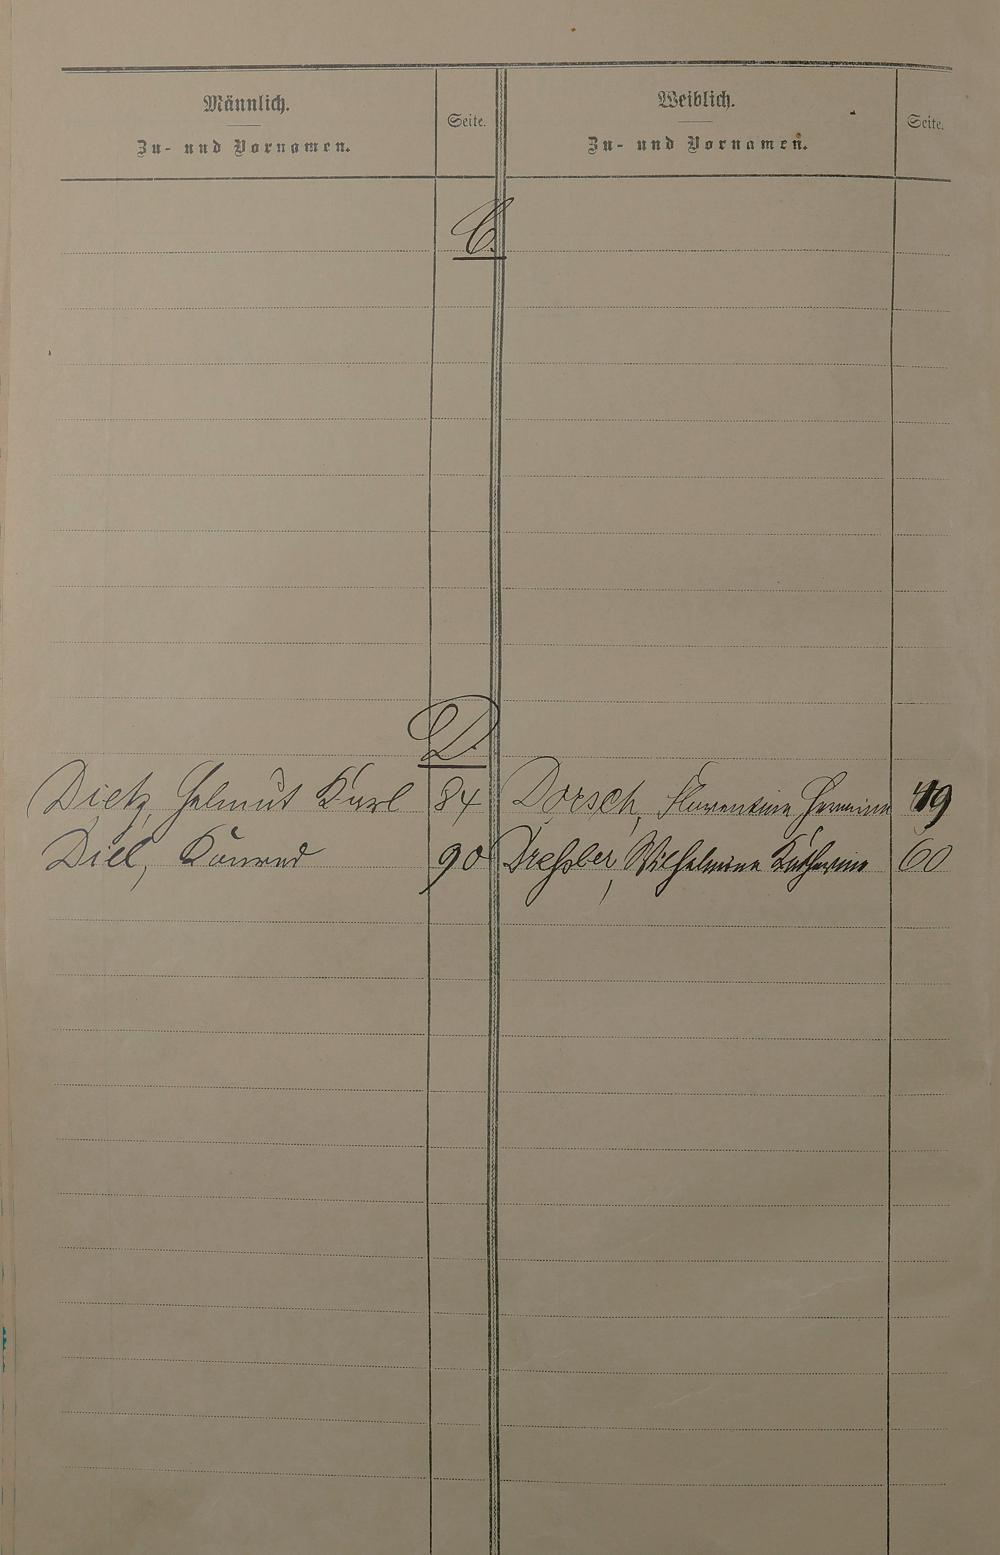 Männlich.
Zu- und Vornamen.
Seite.
Weiblich.
Zu- und Vornamen.
Seite.
C.
D.
Dietz, Helmut Karl 84
Dorsch, Florentine Hermine 49
Diel, Konrad 90
Wilhelmine Katharina 60